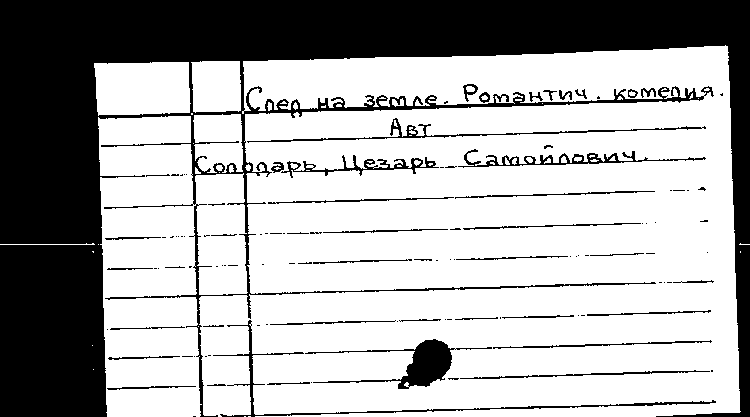 След на земле. Романтич. комедия.
Авт
Солодарь, Цезарь Самойлович.